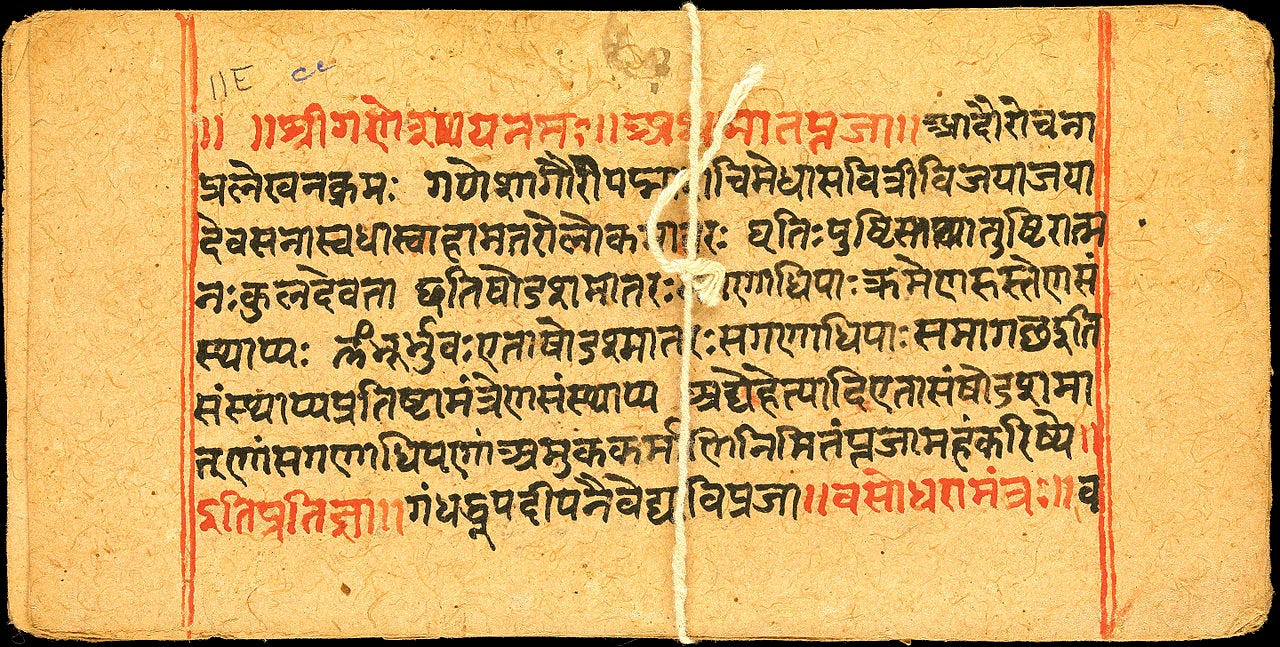 ॥E cc
॥ ॥श्रीगणेशायनमः॥ अथमातृपूजा॥ आदौरोचना
प्रलेखनक्रमः गणेशागौरीपद्माशचिमेधासवित्रीविजयाजया
देवसेनास्वधास्वाहामतरोलोकमातरः घृतिःपुष्टिस्तथातुष्टिरात्म
नःकुलदेवता द्यतिषोडशमातरः क्रमेणहस्तेणसं
स्थाप्यः भूर्भुवःएताषोडश्मातरःसगणाधिपाःसमागछइति
संस्थाप्यप्रतिष्टामंत्रेणसंस्थाप्य अद्येहेत्यादिएतासंषोडशमा
तॄणांसगणाधिपणांअमुककर्मणिनिमितंपूजामहंकरिष्ये॥
इतिप्रतिज्ञा॥ गंधधूपदीपनैवेद्यविपूजा॥ वसोधरामंत्रः॥ व